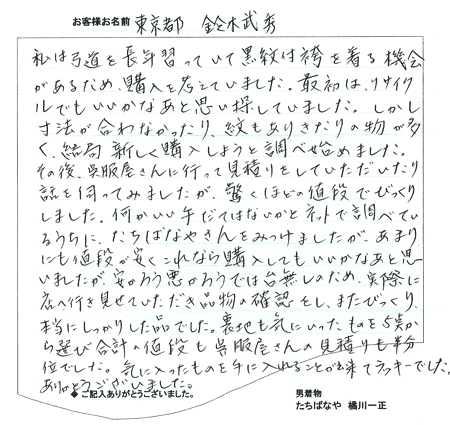 お客様お名前 東京都 鈴木武秀
私は弓道を長年習っていて黒紋付袴を着る機会
があるため、購入を考えていました。最初は、リサイク
ルでもいいかなあと思い探していました。しかし
寸法が合わなかったり、紋もありきたりの物が多
く、結局新しく購入しようと調べ始めました。
その後、呉服屋さんに行って見積りをしていただいたり
話を伺ってみましたが、驚くほどの値段でびっくり
しました。何かいい手だてはないかとネットで調べてい
るうちに、たちばなやさんをみつけましたが、あまり
にも値段が安くこれなら購入してもいいかなあと思
いましたが、安かろう悪かろうでは台無しのため、実際に
店へ行き見せていただき品物の確認をし、またびっくり、
本当にしっかりした品でした。裏地も気にいったものを5点か
ら選び合計の値段も呉服屋さんの見積りも半分
位でした。気に入ったものを手に入れることが出来てラッキーでした。
ありがとうございました。
◆ご記入ありがとうございました。
男着物
たちばなや 橘川一正